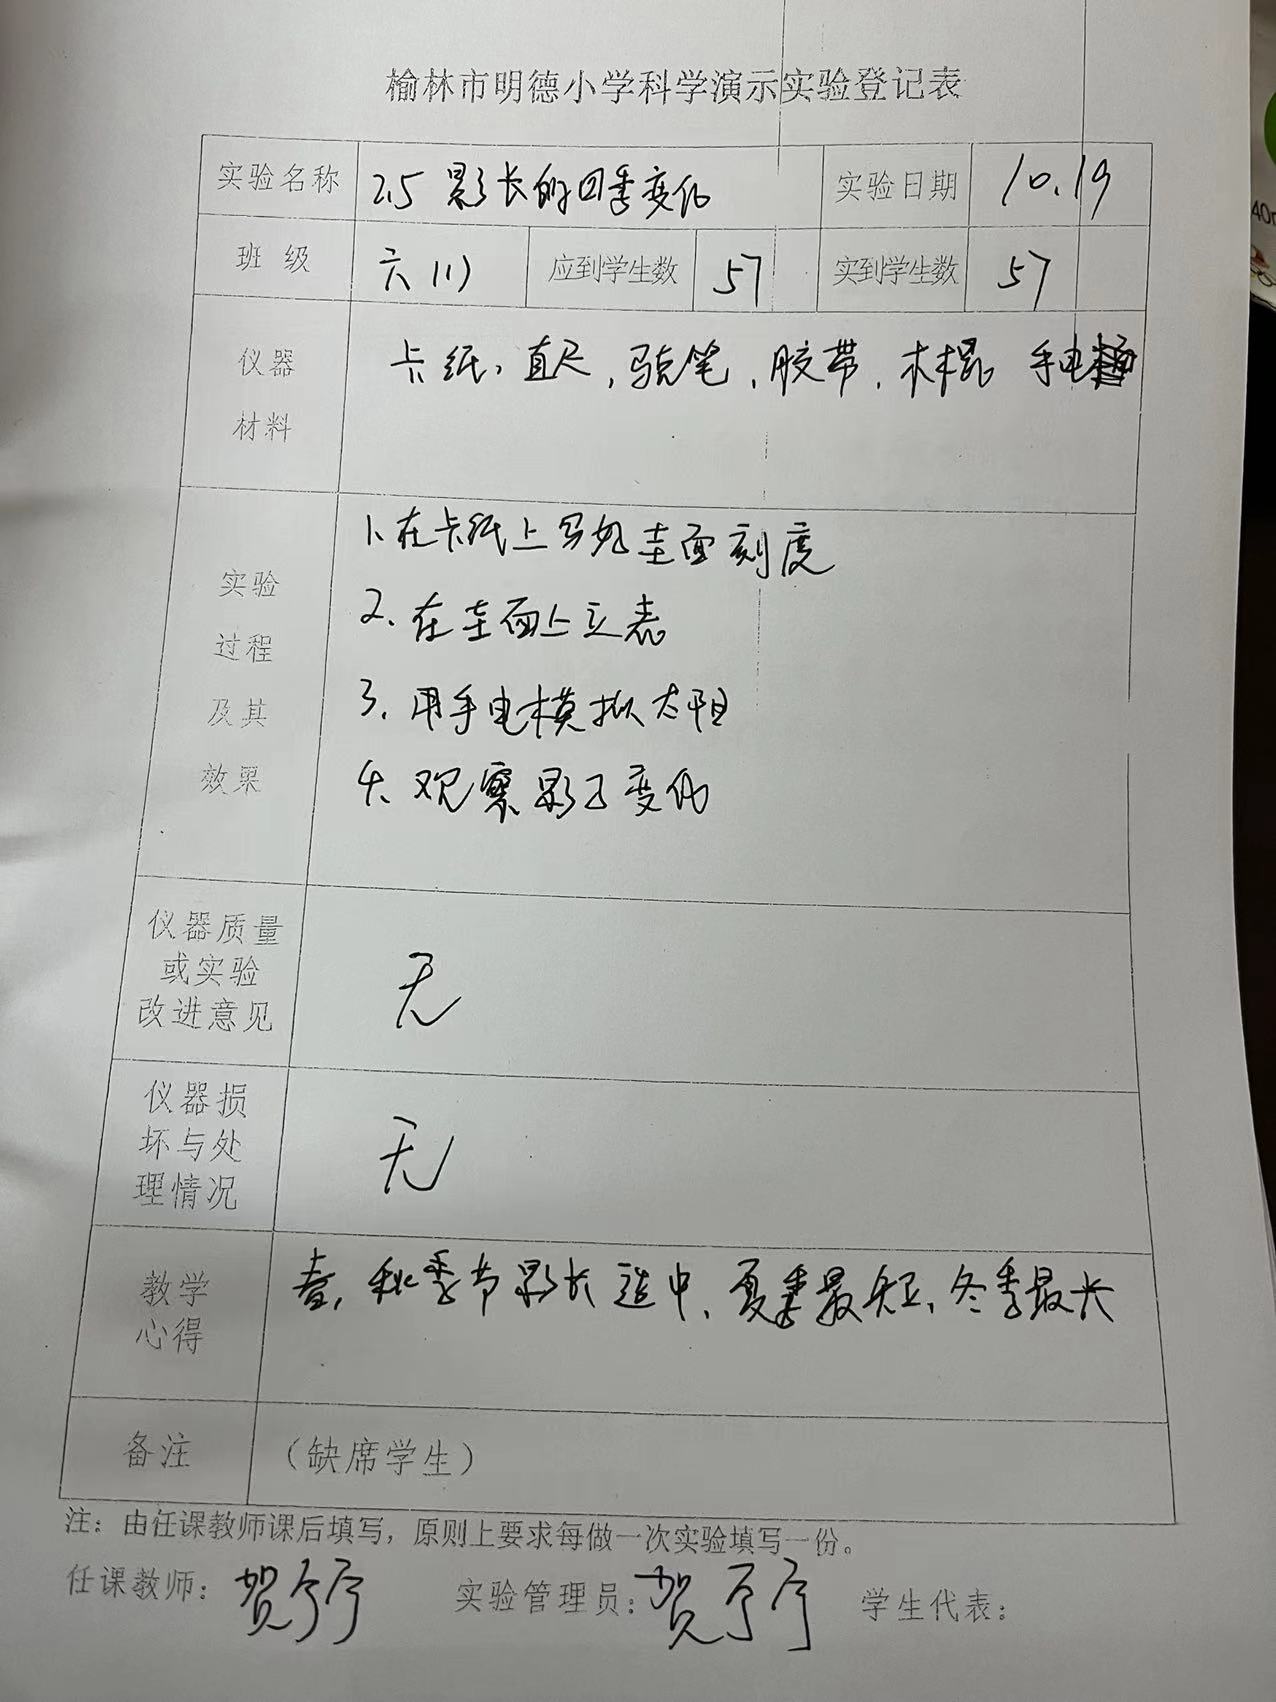 榆林市明德小学科学演示实验登记表
实验名称 2.5 影长的四季变化 实验日期 10.19
班级 六(1) 应到学生数 57 实到学生数 57
仪器 卡纸、直尺,马克笔、胶带、木棍 手电
材料
1、在卡纸上写好圭面刻度
实验
2、在圭面上立表
过程
3、用手电模拟太阳
及其
4、观察影子变化
效果
仪器质量
或实验 无
改进意见
仪器损
坏与处 无
理情况
教学 春、秋季节影长适中、夏季最短、冬季最长
心得
备注 (缺席学生)
注:由任课教师课后填写,原则上要求每做一次实验填写一份。
任课教师: 贺 实验管理员: 贺 学生代表: